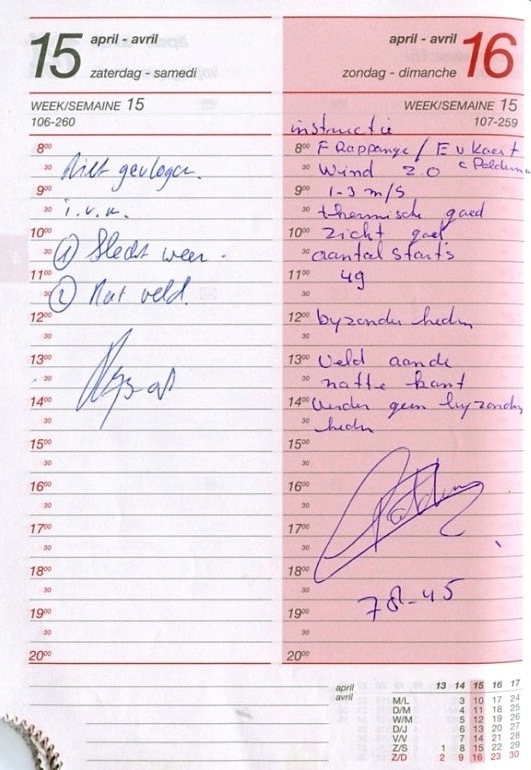 15 april - avril
zaterdag - samedi
WEEK/SEMAINE 15
106-260
8⁰⁰
30 Niet gevlogen.
9⁰⁰
30 i.v.m.
10⁰⁰
30 ① Slecht weer.
11⁰⁰
30 ② Nat veld.
12⁰⁰
30
13⁰⁰
30
14⁰⁰
30
15⁰⁰
30
16⁰⁰
30
17⁰⁰
30
18⁰⁰
30
19⁰⁰
30
20⁰⁰
april - avril 16
zondag - dimanche
WEEK/SEMAINE 15
107-259
instructie
8⁰⁰ F Rappange / E v Kaert
30 Wind 20 c Polderma
9⁰⁰ 1-3 m/s
30 thermische goed
10⁰⁰ zicht goed
30 aantal starts
11⁰⁰ 49
30
12⁰⁰ byzonderheden
30
13⁰⁰ veld aan de
30 natte kant
14⁰⁰ verder geen byzonder
30 heden
15⁰⁰
30
16⁰⁰
30
17⁰⁰
30
18⁰⁰
30 78-45
19⁰⁰
30
20⁰⁰
april 13 14 15 16 17
avril
M/L 3 10 17 24
D/M 4 11 18 25
W/M 5 12 19 26
D/J 6 13 20 27
V/V 7 14 21 28
Z/S 1 8 15 22 29
Z/D 2 9 16 23 30